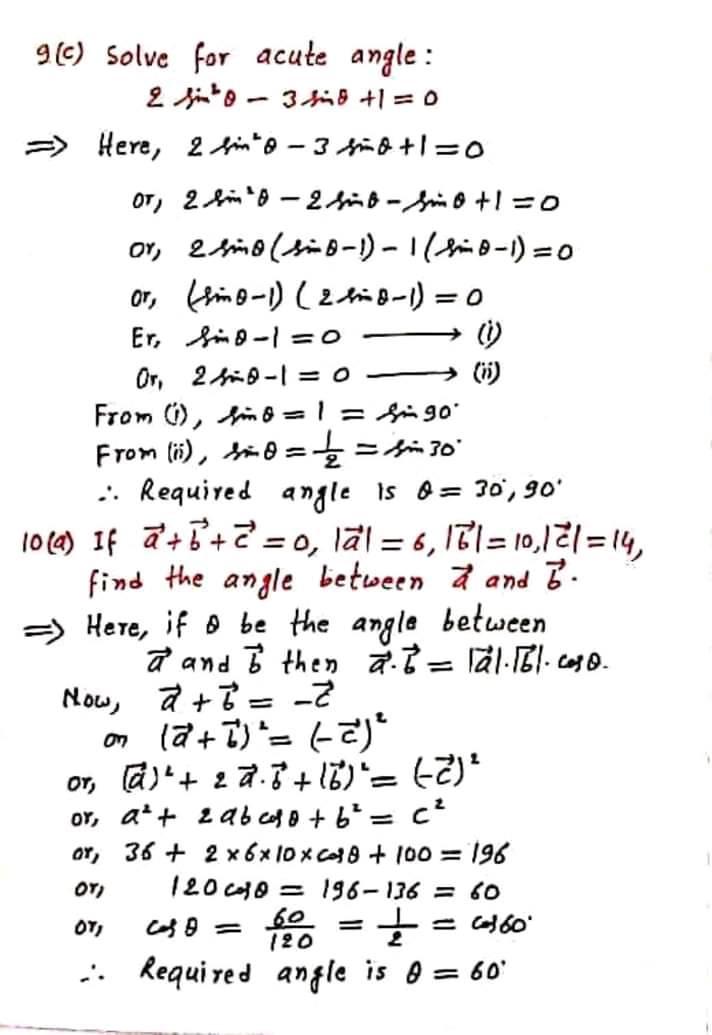 9(c) Solve for acute angle :
2 sin²θ – 3 sinθ +1 = 0
⇒ Here, 2 sin²θ – 3 sinθ +1 = 0
or, 2 sin²θ – 2 sinθ – sinθ +1 = 0
or, 2 sinθ (sinθ–1) – 1 (sinθ–1) = 0
or, (sinθ–1) ( 2 sinθ–1) = 0
Er, sinθ –1 = 0 ⟶ (i)
Or, 2 sinθ –1 = 0 ⟶ (ii)
From (i), sinθ = 1 = sin 90°
From (ii), sinθ = 1/2 = sin 30°
∴ Required angle is θ = 30°, 90°
10(a) If a⃗ + b⃗ + c⃗ = 0, |a⃗| = 6, |b⃗| = 10, |c⃗| = 14,
find the angle between a⃗ and b⃗.
⇒ Here, if θ be the angle between
a⃗ and b⃗ then a⃗.b⃗ = |a⃗|.|b⃗|. cosθ.
Now, a⃗ + b⃗ = –c⃗
or (a⃗ + b⃗)² = (–c⃗)²
or, (a⃗)² + 2 a⃗.b⃗ + (b⃗)² = (–c⃗)²
or, a² + 2ab cosθ + b² = c²
or, 36 + 2 x 6 x 10 x cosθ + 100 = 196
or, 120 cosθ = 196 – 136 = 60
or, cosθ = 60/120 = 1/2 = cos 60°
∴ Required angle is θ = 60°